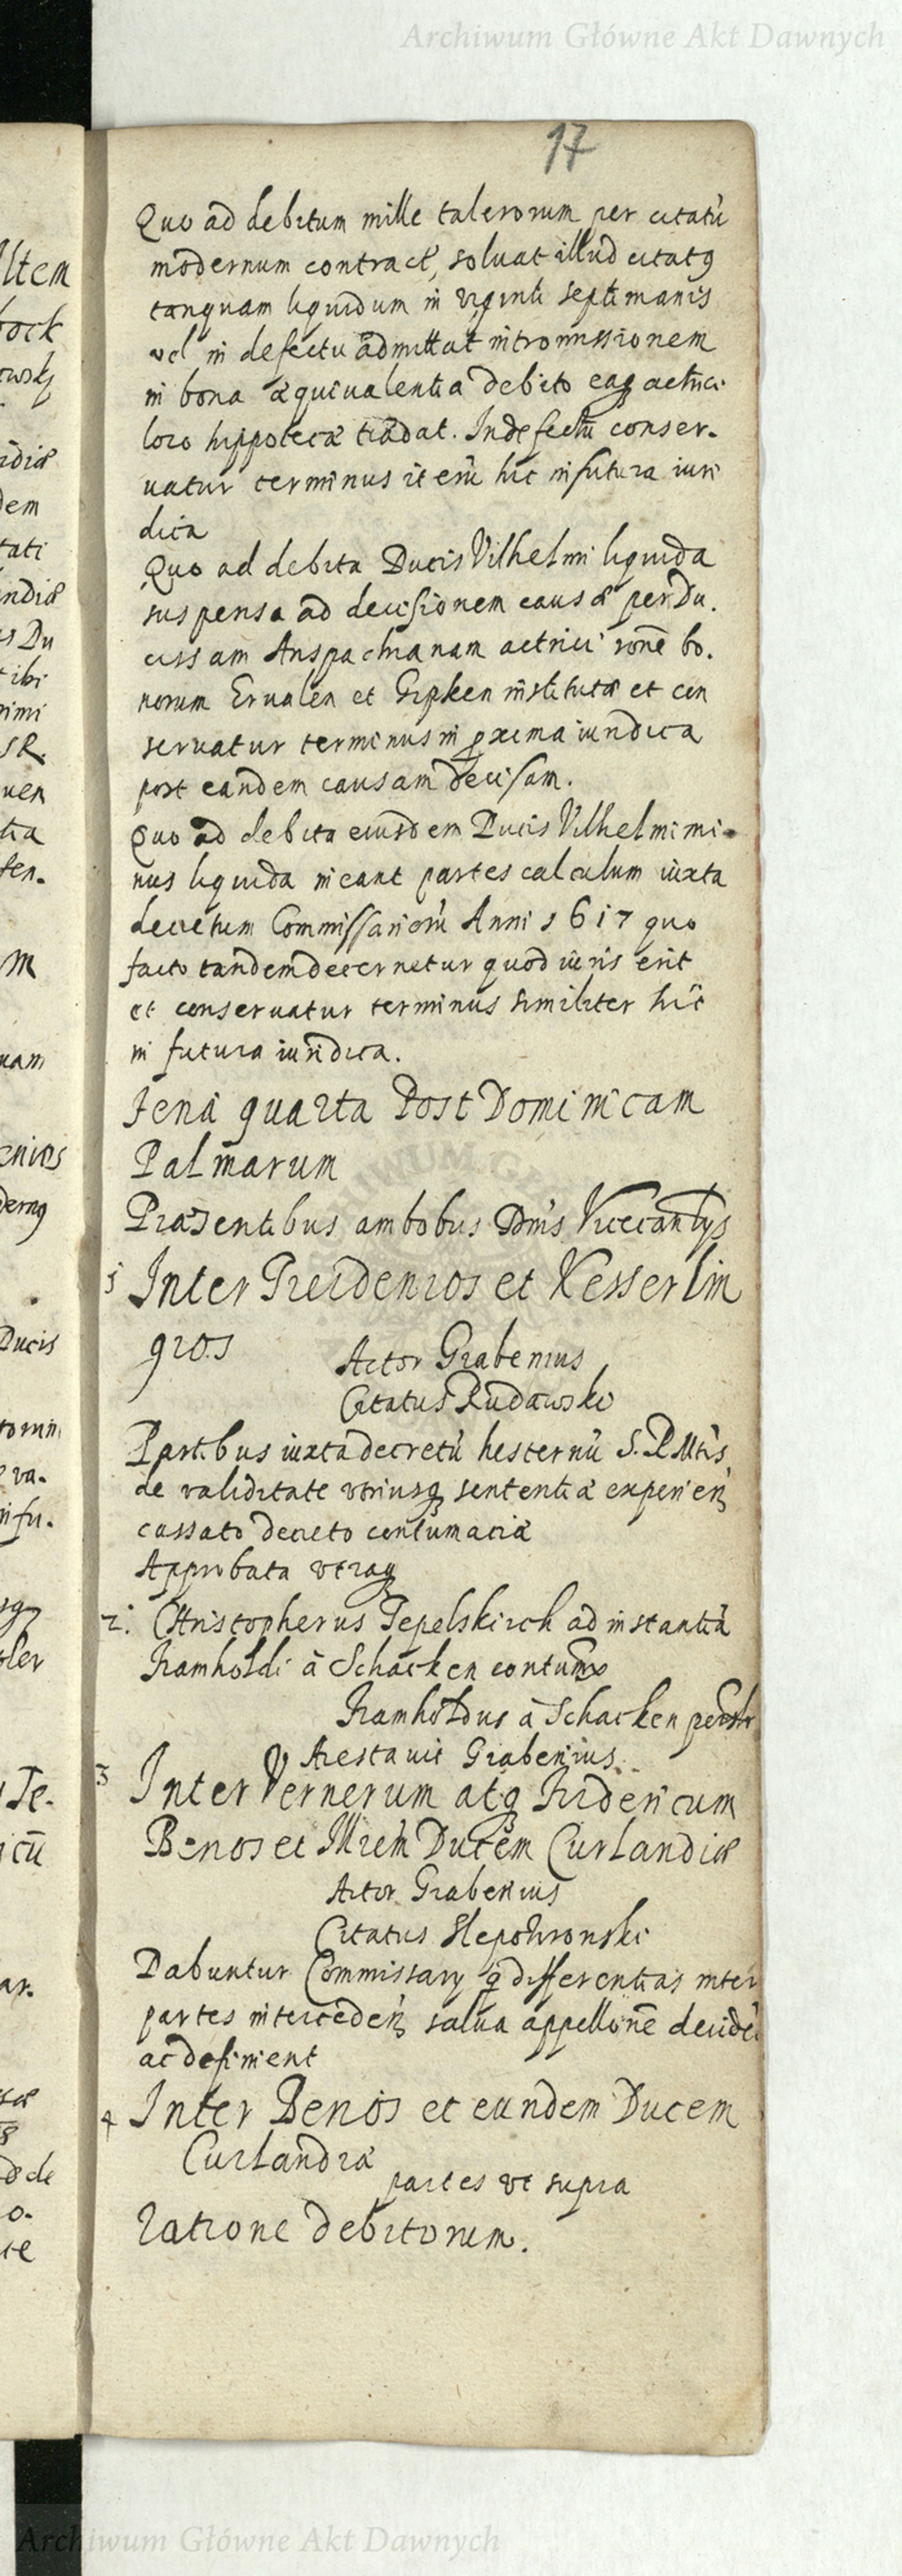 Archiwum Główne Akt Dawnych
17
Quo ad debitum mille talerorum per citatũ
modernum contract, soluat illud citatq
tanquam liquidum in viginti septimanis
vel in defectu admittat intromissionem
in bona æquiualentia debito eaq actrici
loco hyppotecæ tradat. In defectũ conser-
uatur terminus item hic in futura iuri
dica
Quo ad debita Ducis Vilhelmi liquida
suspensa ad decisionem causæ per Du.
cissam Anspachianam actrici rõne bo.
norum Erualen et Gipken institutæ et con
seruatur terminus in pxima iuridica
post eandem causam decisam.
Quo ad debita eiusdem Ducis Vilhelmi mi-
nus liquida ineant partes calculum iuxta
decretum Commissariorũ Anni 1617 quo
facto tandem decernetur quod iuris erit
et conseruatur terminus similiter hic
in futura iuridica.
Feria quarta Post Dominicam
Palmarum
Præsentibus ambobus Dnis Vicecantys
1 Inter Treidenios et Kesserlin
gios
Actor Grabenius
Citatus Rudawski
Partibus iuxta decretũ hesternũ S. R Mtis
de validitate vtriusq sententiæ experien
cassato decreto contumaciæ
Approbata vtraq
2. Christopherus Tepelskirch ad instantiã
Framholdi à Schacken contumx
Framholdus à Schacken
Arestauit Grabenius
3 Inter Vernerum atq Fridericum
Benos et Illrem Ducem Curlandiæ
Actor Grabenius
Citatus Slepowronski
Dabuntur Commissary q differentias inter
partes interceden salua appellõne
ac definient
4 Inter Benos et eundem Ducem
Curlandiæ
partes vt supra
Ratione debitorum.
Archiwum Główne Akt Dawnych